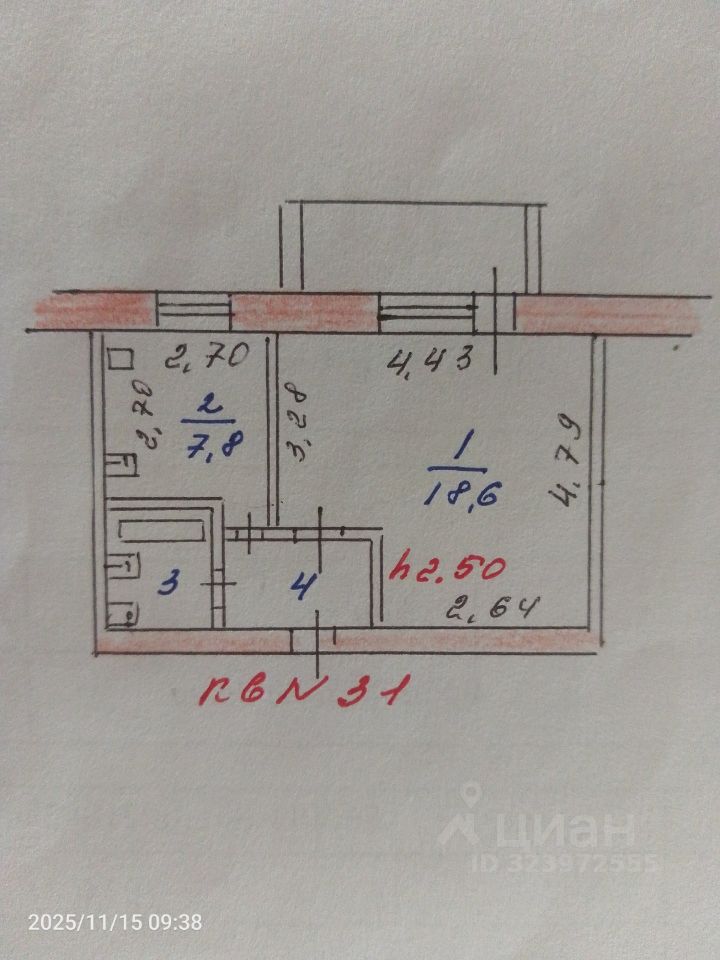 2,70
4,43
2,70
2
7,8
3,28
1
18,6
4,79
3
4
h 2.50
2,64
кв N 31
циан
ID 323972555
2025/11/15 09:38